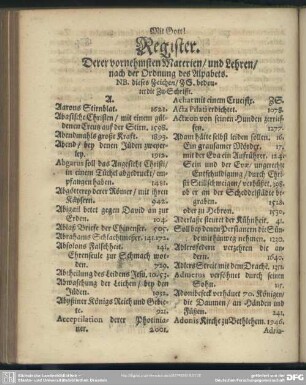 Mit Gott!
Register.
Derer vornehmsten Materien/ und Lehren/
nach der Ordnung des Alpabets.
NB. dieses Zeichen/ ZS. bedeu-
tet die Zu-Schrifft.
A.
Aarons Stirnblat. 1622.
Abassische Christen/ mit einem gül-
denen Creutz auf der Stirn. 1598.
Abendmahls große Krafft. 1899.
Abend/ bey denen Jüden zweyer-
ley. 1912.
Abgarus soll das Angesicht Christi/
in einem Tüchel abgedruckt/ em-
pfangen haben. 1412.
Abgötterey derer Römer/ mit ihren
Käysern. 942.
Abigail betet gegen David an zur
Erden. 104.
Ablaß Briefe der Chineser. 500.
Abrahams Schlachtmesser. 141.172.
Absolons Falschheit. 141.
Ehrenseule zur Schmach wor-
den. 759.
Abtheilung des Leidens Jesu. 10.93.
Abwaschung der Leichen/ bey den
Jüden. 1931.
Abyßiner Königs Reich und Gebie-
te. 922.
Acceptilation derer Photinia-
ner. 2001.
Achat mit einem Crucifix. ZS.
Acta Pilati erdichtet. 1078.
Actæon von seinen Hunden zerris-
sen. 1277.
Adam hätte selbst leiden sollen. 16.
Ein grausamer Mörder. 17.
mit der Eva ein Aufrührer. 1240
Sein und der Eva/ ungerechte
Entschuldigung/ hat/ durch Chri-
sti Stillschweigen/ verbüßet. 308.
ob er an der Schedelstädte be-
graben. 1518.
oder zu Hebron. 1520.
Aderlasse steuret der Kühnheit. 41.
Soll bey denen Persianern die Sün-
den mit hinweg nehmen. 1212.
Adlersfedern verzehren die an-
dern. 240.
Adlers Streit mit dem Drachen. 1372.
Admetus versöhnet durch seinen
Sohn. 115.
Adonibesek verhauet 70. Königen
die Daumen/ an Händen und
Füßen. 241.
Adonis Kirche zu Bethlehem. 1746.
Adria-